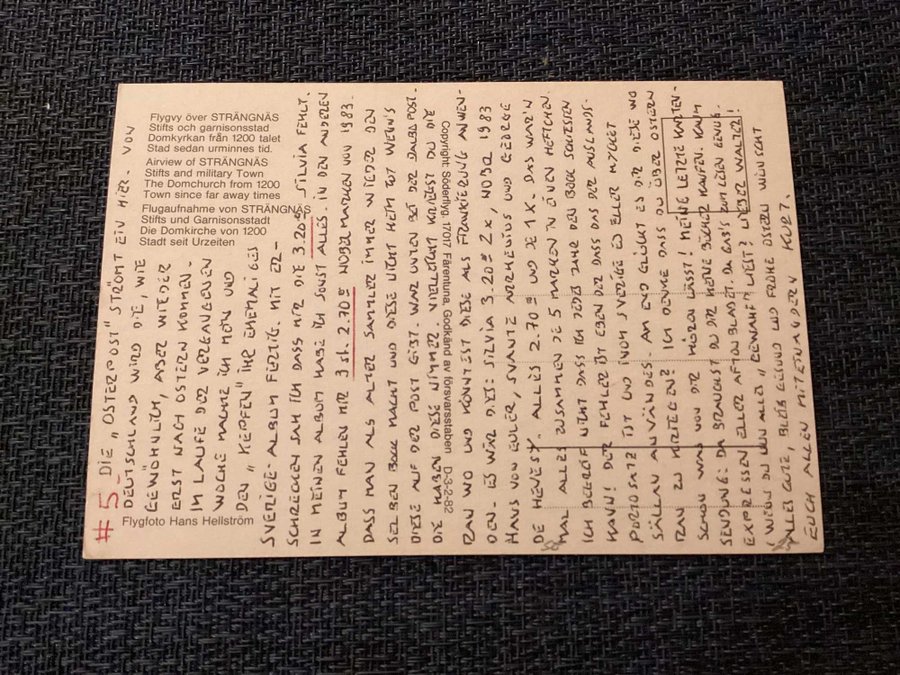 Flygvy över STRÄNGNÄS
Stifts och garnisonsstad
Domkyrkan från 1200 talet
Stad sedan urminnes tid.
Airview of STRÄNGNÄS
Stifts and military Town
The Domchurch from 1200
Town since far away times
Flugaufnahme von STRÄNGNÄS
Stifts und Garnisonsstadt
Die Domkirche von 1200
Stadt seit Urzeiten
Flygfoto Hans Hellström
Copyright: Söderflyg. 17017 Färentuna. Godkänd av försvarsstaben D-3-2-82
#5- DIE „OSTERPOST" STRÖMT EIN HIER. VON
DEUTSCHLAND WIRD DIE, WIE
GEWÖHNLICH, ABER WIEDER
ERST NACH OSTERN KOMMEN.
IM LAUFE DER VERGANGENEN
WOCHE MACHTE ICH MEIN UND
DEN „KEPFEN" IHR EHEMALIGES
SVERIGE-ALBUM FERTIG. MIT ER-
SCHRECKEN SAH ICH DASS MIR DIE 3.20ö SILVIA FEHLT.
IN MEINEN ALBUM HABE ICH SONST ALLES. IN DEN ANDEREN
ALBUM FEHLEN MIR 3 st. 2.70ö NOBELMARKEN VON 1983.
DASS MAN ALS ALTER SAMLER IMMER WIEDER DEN
SELBEN BOCK MACHT UND DIESE NICHT HEIM TUT WENN'S
DIESE AUF DER POST GIBT. WAR UNTEN BEI DER DALARÖPOST.
DIE HABEN DIESE NIMMER. VIELLEICHT KRIEGST DU DIE
RAN UND KÖNNTEST DIESE ALS FRANKIERUNG ANWEN-
DEN. ES WÄR DIES: SILVIA 3.20ö 2x, NOBEL 1983
HANS VON EULER, SVANTE ARRHENIUS UND GEORGE
DE HEVESY. ALLES 2.70ö UND JE 1X. DAS WAR'N
MAL ALLES ZUSAMMEN DE 5 MARKEN IN EINEN HEFTCHEN.
ICH BEGREIF NICHT DASS ICH JEDES JAHR DEN BOCK SCHIESSEN
KANN! DER FEHLER IST EBEN DER DASS DAS DER AUSLANDS-
PORTOSATZ IST UND INOM SVERIGE ES ELLER MYCKET
SÄLLAN ANVÄNDES. AM END GLÜCKT ES DIR DIESE WO
RAN ZU KRIEGEN? ICH DENKE DASS DU ÜBER OSTERN
SCHON WAS VON DIR HÖREN LÄSST! MEINE LETZTE KARTEN-
SENDUNG: DA BRAUCHST DU DIR KEINE BÜCHER KAUFEN. KAUM
EXPRESSEN ELLER AFTONBLADET. DA GAB'S ZUM LESEN GENUG.
(WENN DU NUN ALLES GENAU LIEST? LIEBER WALTER!
ALLES GUTE, BLEIB GESUND UND FROHE OSTERN WÜNSCHT
EUCH ALLEN MITEINANDERN KURT.